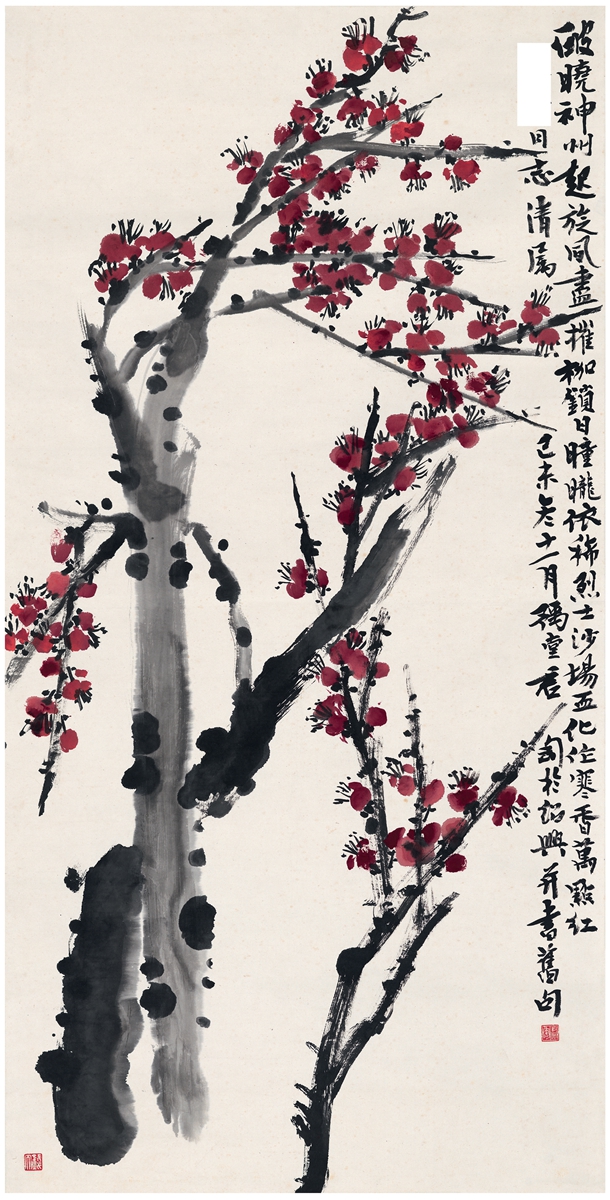 破曉神州起旋風盡摧枷鎖日曈曨依稀烈士沙場血化作寒香萬點紅
同志清屬
己未冬十一月豫堂君匋於紹興并書舊句